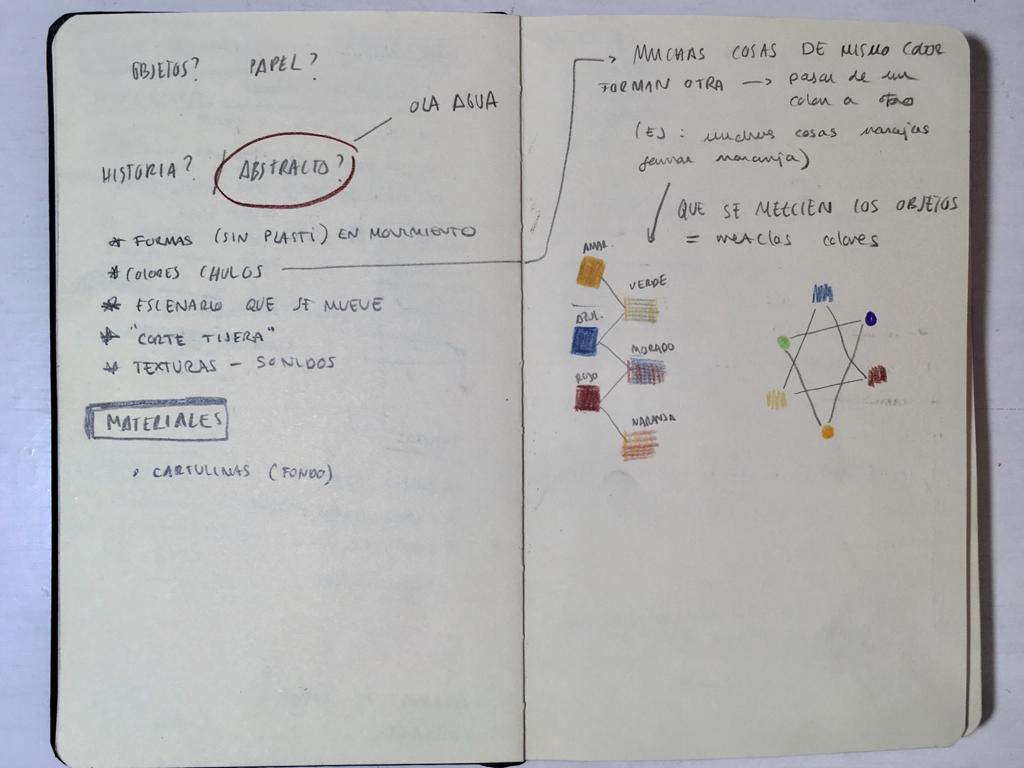 OBJETOS? PAPEL?
OLA AGUA
HISTORIA? / ABSTRACTO?
* FORMAS (SIN PLASTI) EN MOVIMIENTO
* COLORES CHULOS
* ESCENARIO QUE SE MUEVE
* "CORTE TIJERA"
* TEXTURAS – SONIDOS
MATERIALES
› CARTULINAS (FONDO)
→ MUCHAS COSAS DE MISMO COLOR
FORMAN OTRA → pasar de un
color a otro
(EJ: muchas cosas narajas
forman naranja)
QUE SE MEZCLEN LOS OBJETOS
= mezclas colores
AMAR.
VERDE
AZUL.
MORADO
ROJO
NARANJA